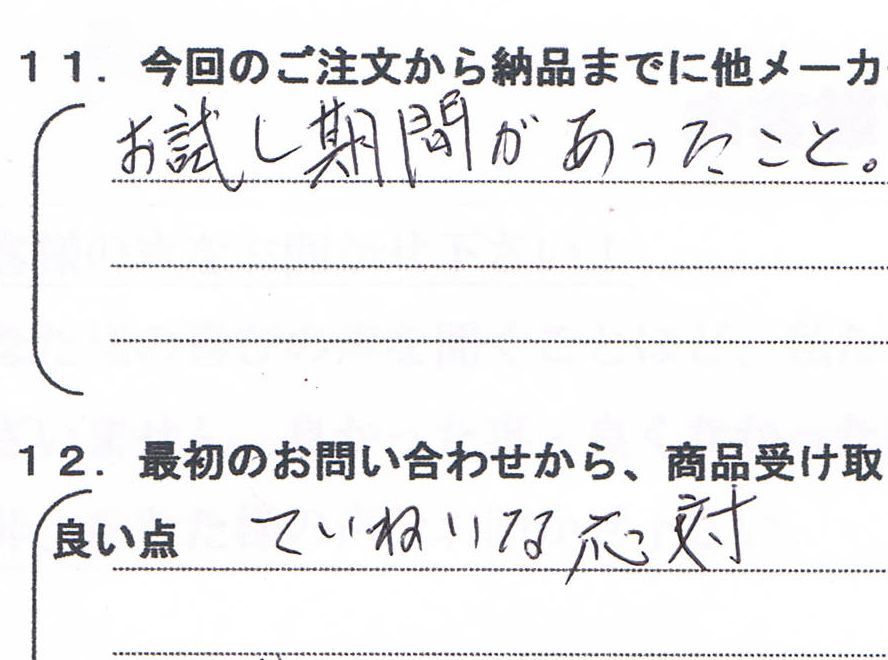 11．今回のご注文から納品までに他メーカ
お試し期間があったこと。
12．最初のお問い合わせから、商品受け取
良い点 ていねいな応対